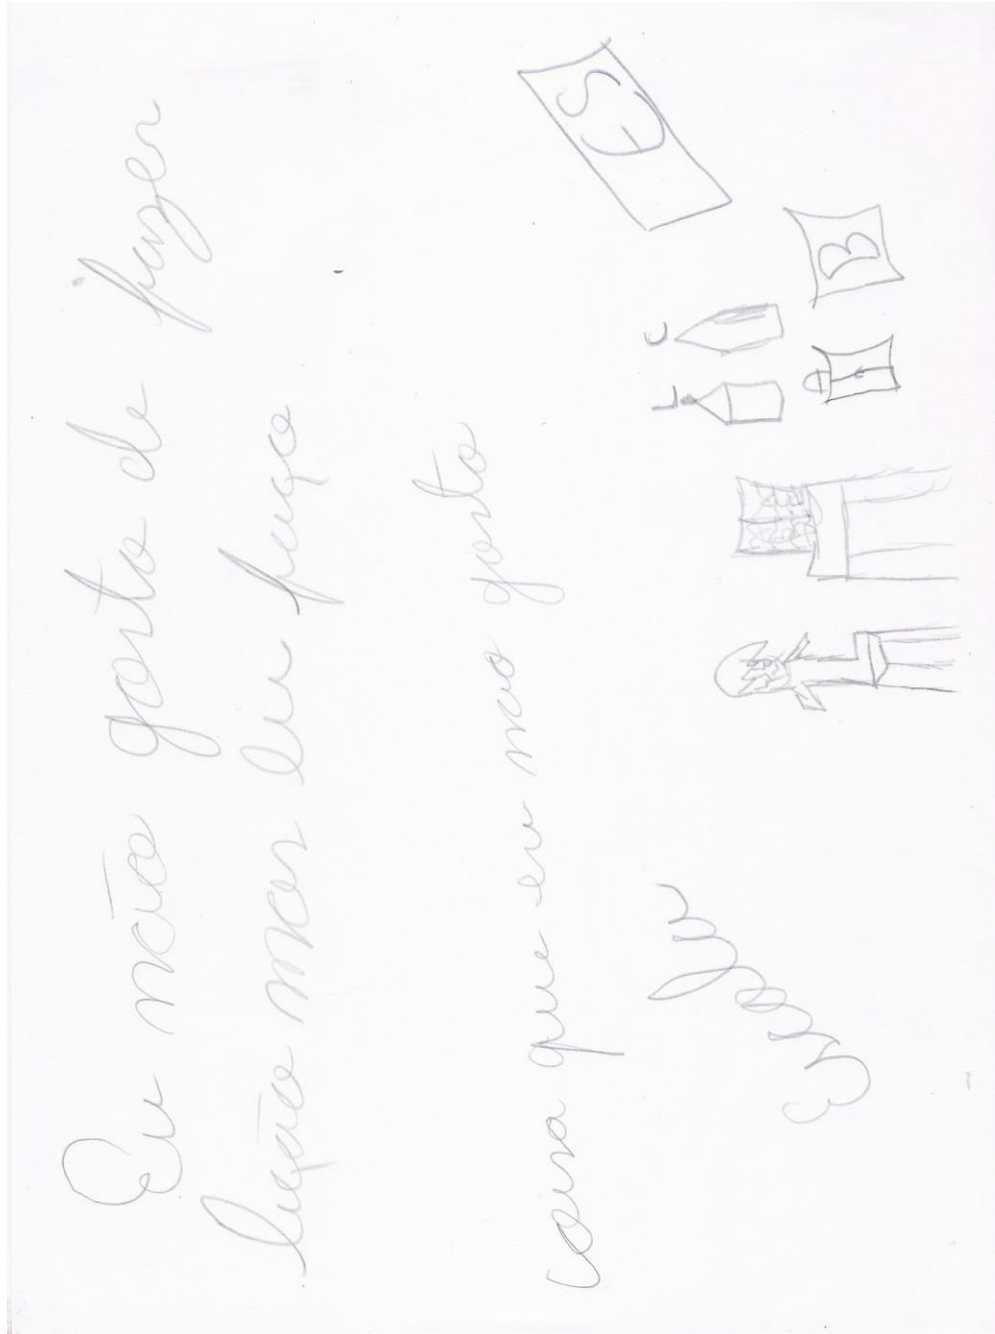 Eu não gosto de fazer
lição mas eu faço
coisa que eu não gosto
Escola
ES
L
C
B